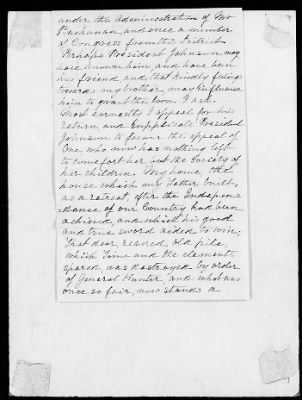 under the Administration of Mr
Buchanan, and once a member
of Congress from this District
Perhaps President Johnson, may
have known him, and have been
his friend and that kindly feeling
towards my brother, may influence
him to grant the boon I ask.
Most earnestly I appeal for his
return, and supplicate President
Johnson to favour the appeal of
One who now has nothing left
to comfort her but the Society of
her children. My home, the
house which my Father built,
as a retreat, after the Independ-
dance of our Country had been
achieved and which his good
and true sword aided to win;
that dear, revered, old pile,
which Time and the elements
spared, was destroyed by order
of General Hunter, and what was
once so fair, now stands a